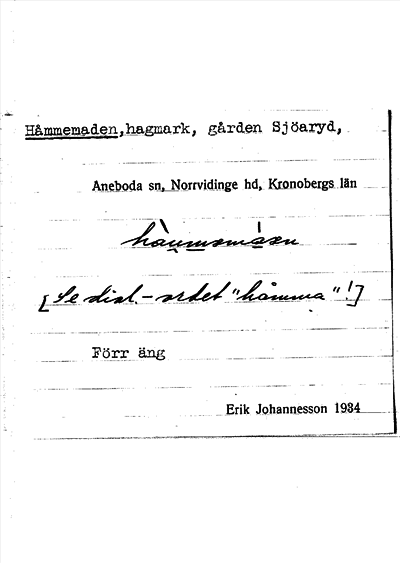 Håmmemaden, hagmark, gården Sjöaryd,
Aneboda sn, Norrvidinge hd, Kronobergs län
[Se dial.-ordet "håmma"!]
Förr äng
Erik Johannesson 1934